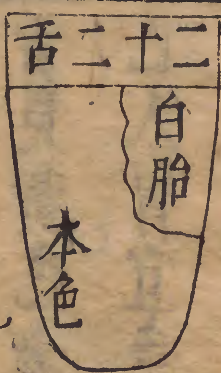 二十二舌
白胎
本色